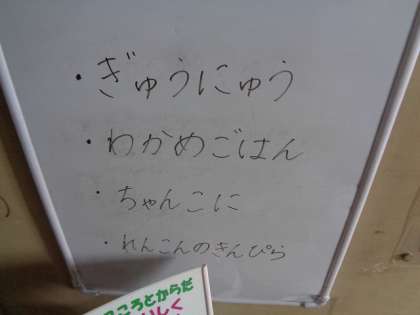 ・ぎゅうにゅう
・わかめごはん
・ちゃんこに
・れんこんのきんぴら
こころとからだ